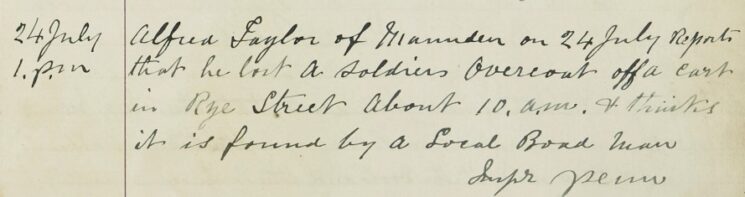 24 July Alfred Taylor of Manuden on 24 July Reports
1.p.m that he lost A Soldiers Overcoat off a cart
in Rye Street About 10.a.m. & thinks
it is found by A Local Road Man
Inspr Penn